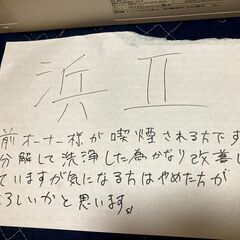 浜 II
前オーナー様が喫煙される方です
分解して洗浄した為かなり改善し
ていますが気になる方はやめた方が
ろしいかと思います。